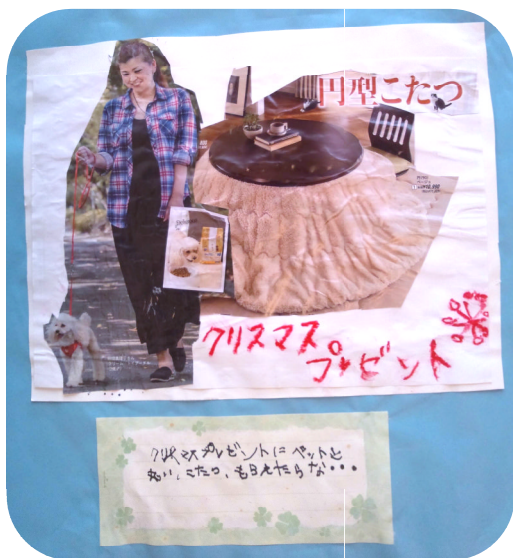 円型こたつ
クリスマス
プレゼント
クリスマスプレゼントに ペットと
丸い、こたつ、もらえたらな・・・